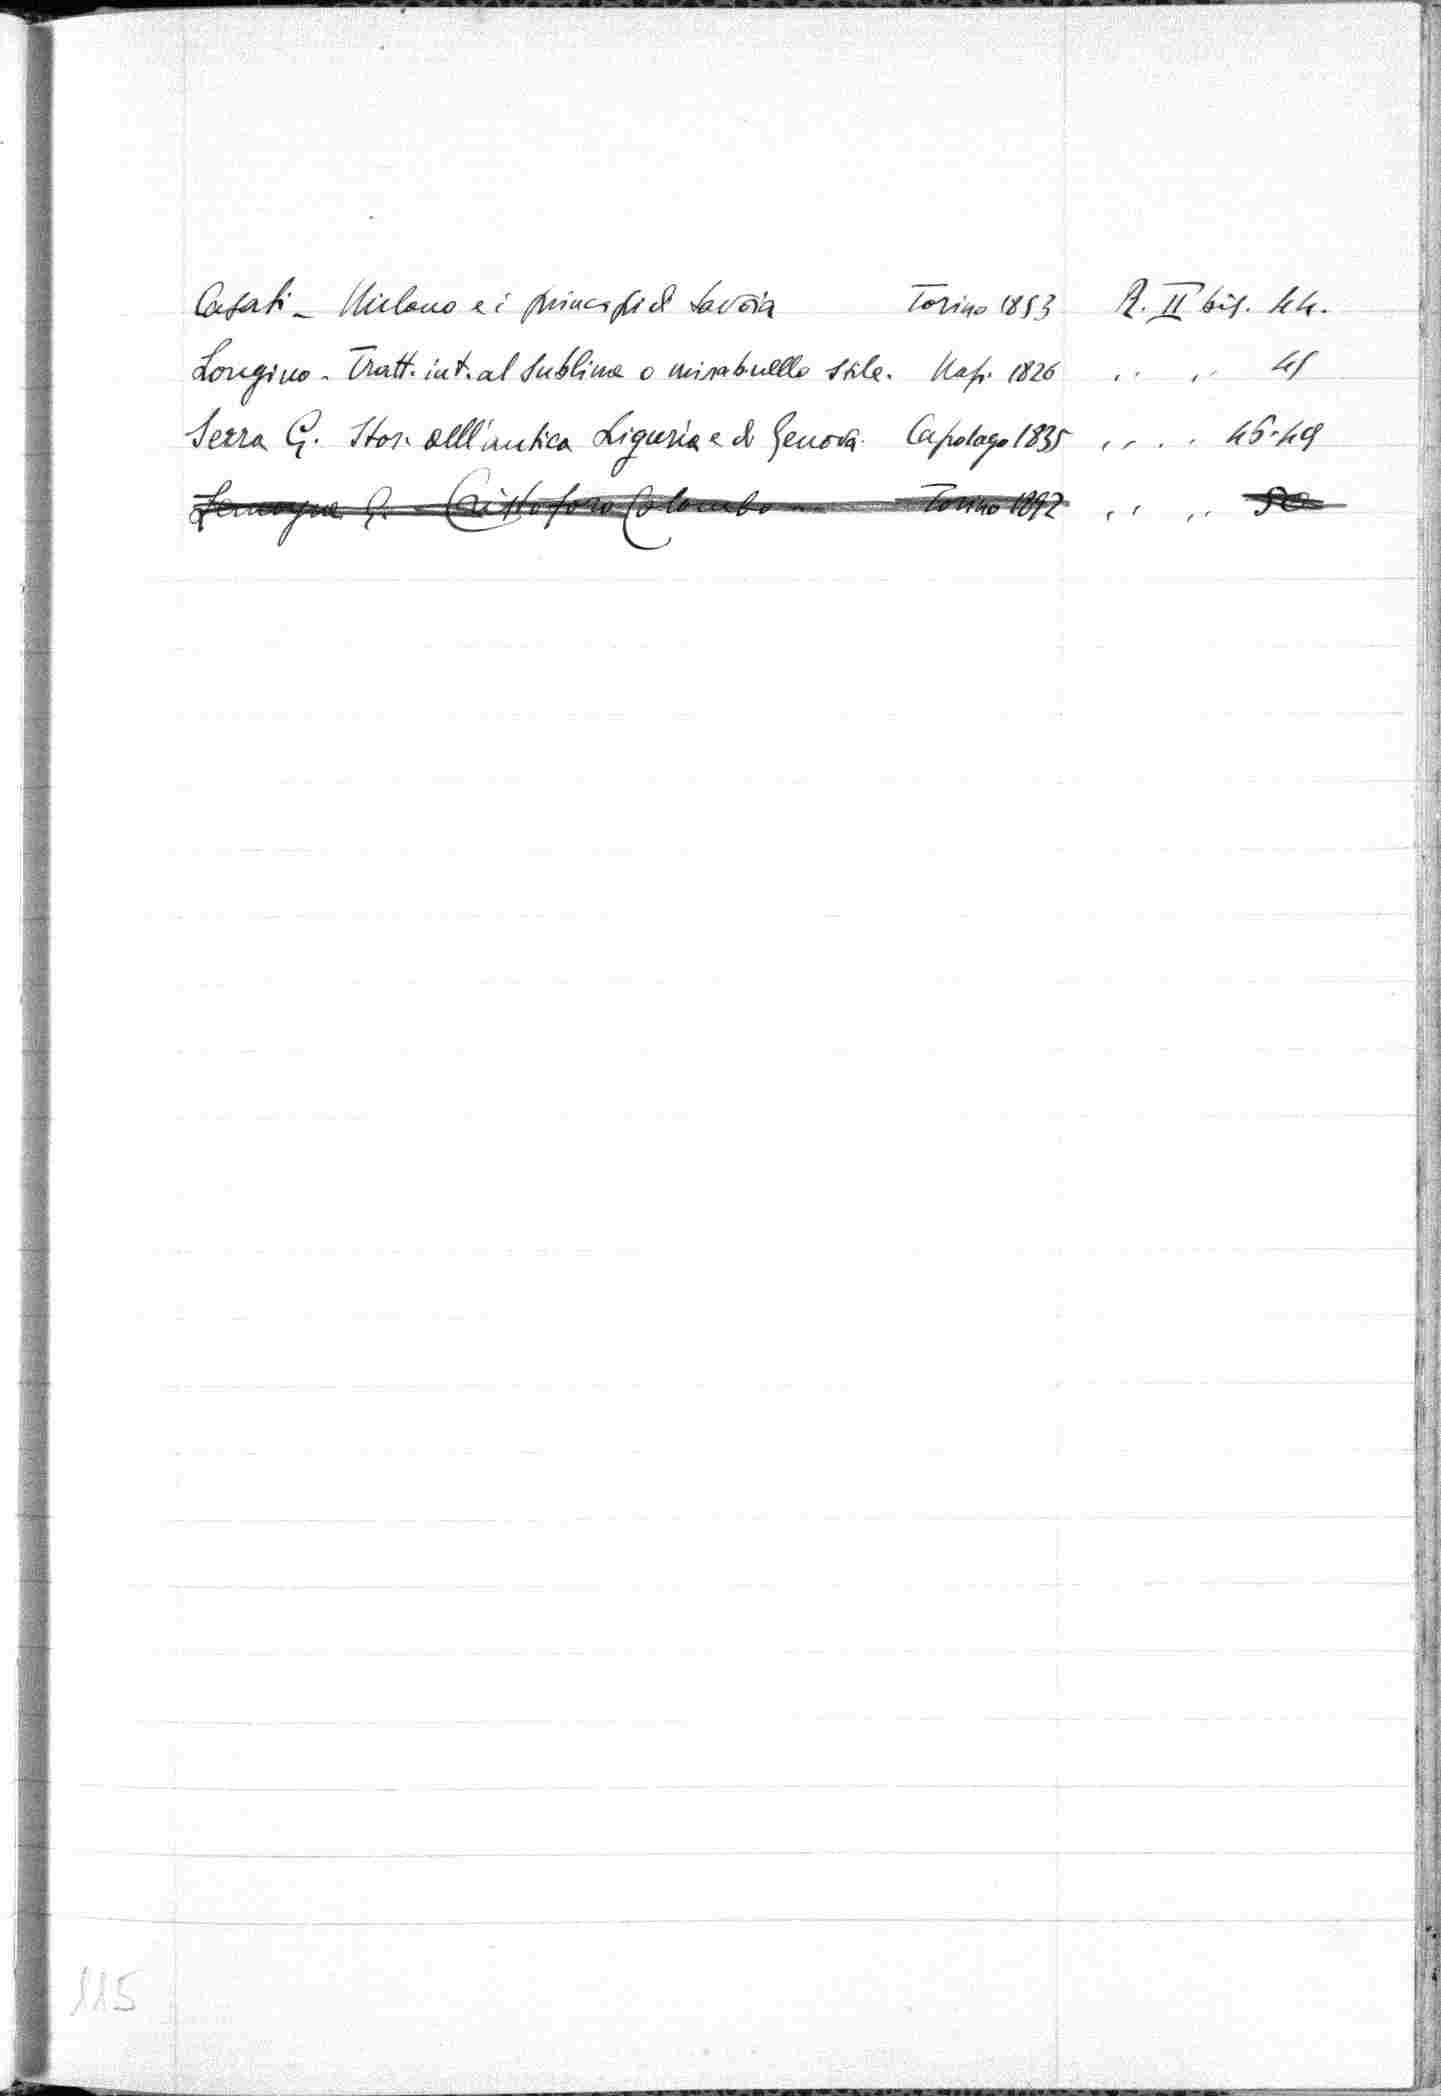 Casati - Milano e i principi di Savoia Torino 1853 R. II bis. 44.
Longino - Tratt. int. al sublime o mirabuello stile. Nap. 1826 " " 45
Serra G. Stor. dell'antica Liguria e di Genova. Capolago 1835 " " 46-49
Lemoyne G. - Cristoforo Colombo - Torino 1892 " " 50
115